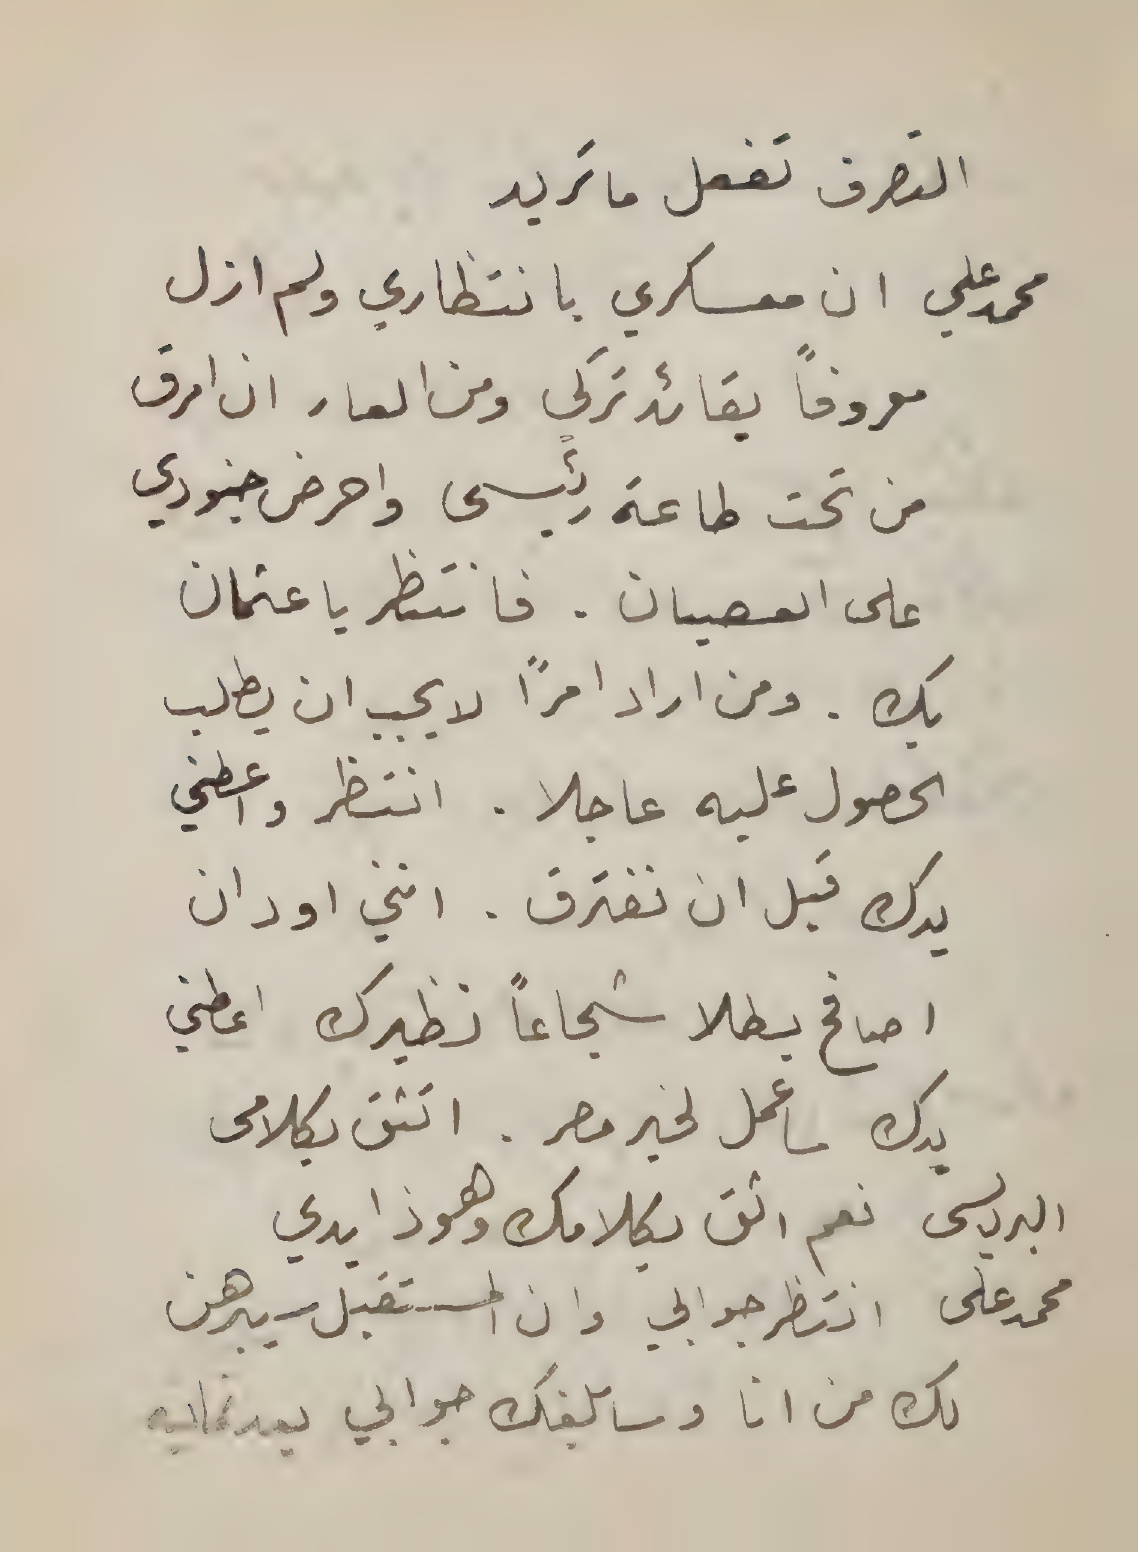 التصرف تفعل ما تريد
محمد علي ان معسكري بانتظاري ولم ازل
معروفاً بقائد تركي ومن العار ان امرق
من تحت طاعة رئيسى واحرض جنودي
على العصيان . فانتظر يا عثمان
بك . ومن اراد امرًا لا يجب ان يطلب
الحصول عليه عاجلا . انتظر واعطني
يدك قبل ان نفترق . انني اود ان
اصافح بطلا شجاعاً نظيرك اعطني
يدك ساعمل لخير مصر . اتثق بكلامى
البرديسى نعم اثق بكلامك وهوذا يدي
محمد على انتظر جوابي وان المستقبل سيبرهن
لك من انا وسابلغك جوابي بعد ثمانية